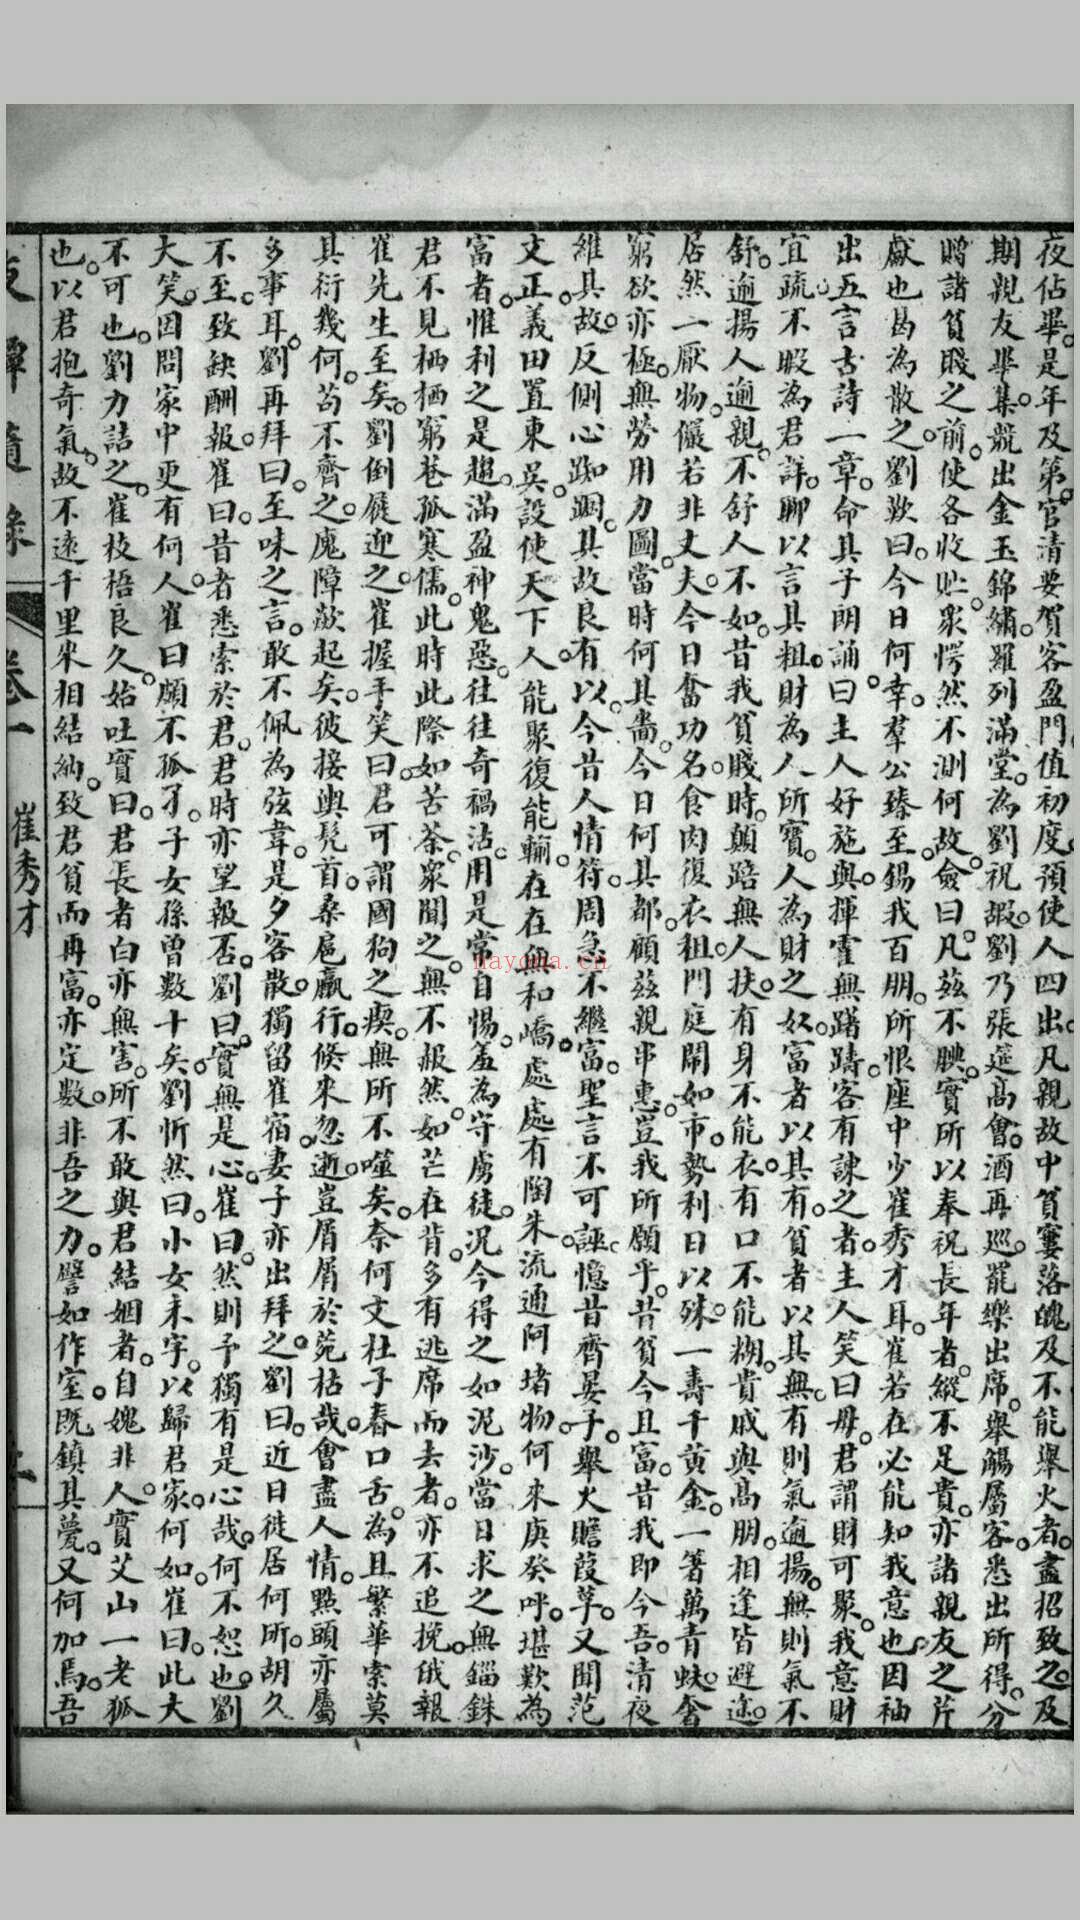 夜佔畢。是年及第。官清要賀客盈門值初度預使人四出凡親故中貧窶落魄及不能舉火者。盡招致之。及
期親友畢集。競出金玉錦繡。羅列滿堂。為劉祝嘏劉乃張筵高會。酒再巡。罷樂出席。舉觴屬客。悉出所得。分
賜諸貧賤之前。使各收貯。衆愕然不測何故。僉曰。凡茲不腆。實所以奉祝長年者。縱不足貴。亦諸親友之芹
獻也曷為散之。劉歎曰。今日何幸。羣公臻至。錫我百朋。所恨座中少崔秀才耳。崔若在必能知我意也因袖
出五言古詩一章。命其子朗誦曰。主人好施與。揮霍無躊躇。客有諫之者。主人笑曰毋。君謂財可聚。我意財
宜疏。不暇為君詳。聊以言其粗。財為人所寶。人為財之奴。富者以其有。貧者以其無。有則氣遒揚。無則氣不
舒。遒揚人遒親。不舒人不如。昔我貧賤時。顛踣無人扶。有身不能衣。有口不能糊。貴戚與高朋。相逢皆避途。
居然一厭物。儼若非丈夫。今日奮功名。食肉復衣租。門庭鬧如市。勢利日以殊。一壽千黃金。一箸萬青蚨。奢
窮欲亦極。無勞用力圖。當時何其嗇。今日何其都。顧茲親串惠。豈我所願乎。昔貧今且富。昔我即今吾。清夜
維其故。反側心踟躕。其故良有以。今昔人情符。周急不繼富。聖言不可誣。憶昔齊晏子。舉火贍葭莩。又聞范
文正。義田置東吳。設使天下人。能聚復能輸。在在無和嶠。處處有陶朱。流通阿堵物。何來庚癸呼。堪歎為
富者。惟利之是趨。滿盈神鬼惡。往往奇禍沽。用是常自惕。羞為守虜徒。況今得之如泥沙。當日求之無錙銖
君不見栖栖窮巷孤寒儒。此時此際如苦荼。衆聞之。無不赧然。如芒在背。多有逃席而去者。亦不追挽。俄報
崔先生至矣。劉倒屣迎之。崔握手笑曰。君可謂國狗之瘈。無所不噬矣。奈何文杜子春口舌。為且繁華索莫
其衍幾何。苟不齊之。魔障歘起矣。彼接輿髠首。桑扈臝行。倏來忽逝。豈屑屑於菀枯哉。會盡人情。點頭亦屬
多事耳。劉再拜曰。至味之言。敢不佩為弦韋。是夕客散。獨留崔宿。妻子亦出拜之。劉曰。近日徙居何所。胡久
不至。致缺酬報。崔曰。昔者悉索於君。君時亦望報否。劉曰。實無是心。崔曰。然則予獨有是心哉。何不恕也。劉
大笑。因問家中更有何人。崔曰。頗不孤孑。子女孫曾數十矣。劉忻然曰。小女未字。以歸君家。何如。崔曰。此大
不可也。劉力詰之。崔枝梧良久。始吐實曰。君長者白亦無害。所不敢與君結姻者。自媿非人。實艾山一老狐
也。以君抱奇氣。故不遠千里來相結納。致君貧而再富。亦定數。非吾之力。譬如作室。既鎮其甍。又何加焉。吾
夜譚隨錄 卷一 崔秀才